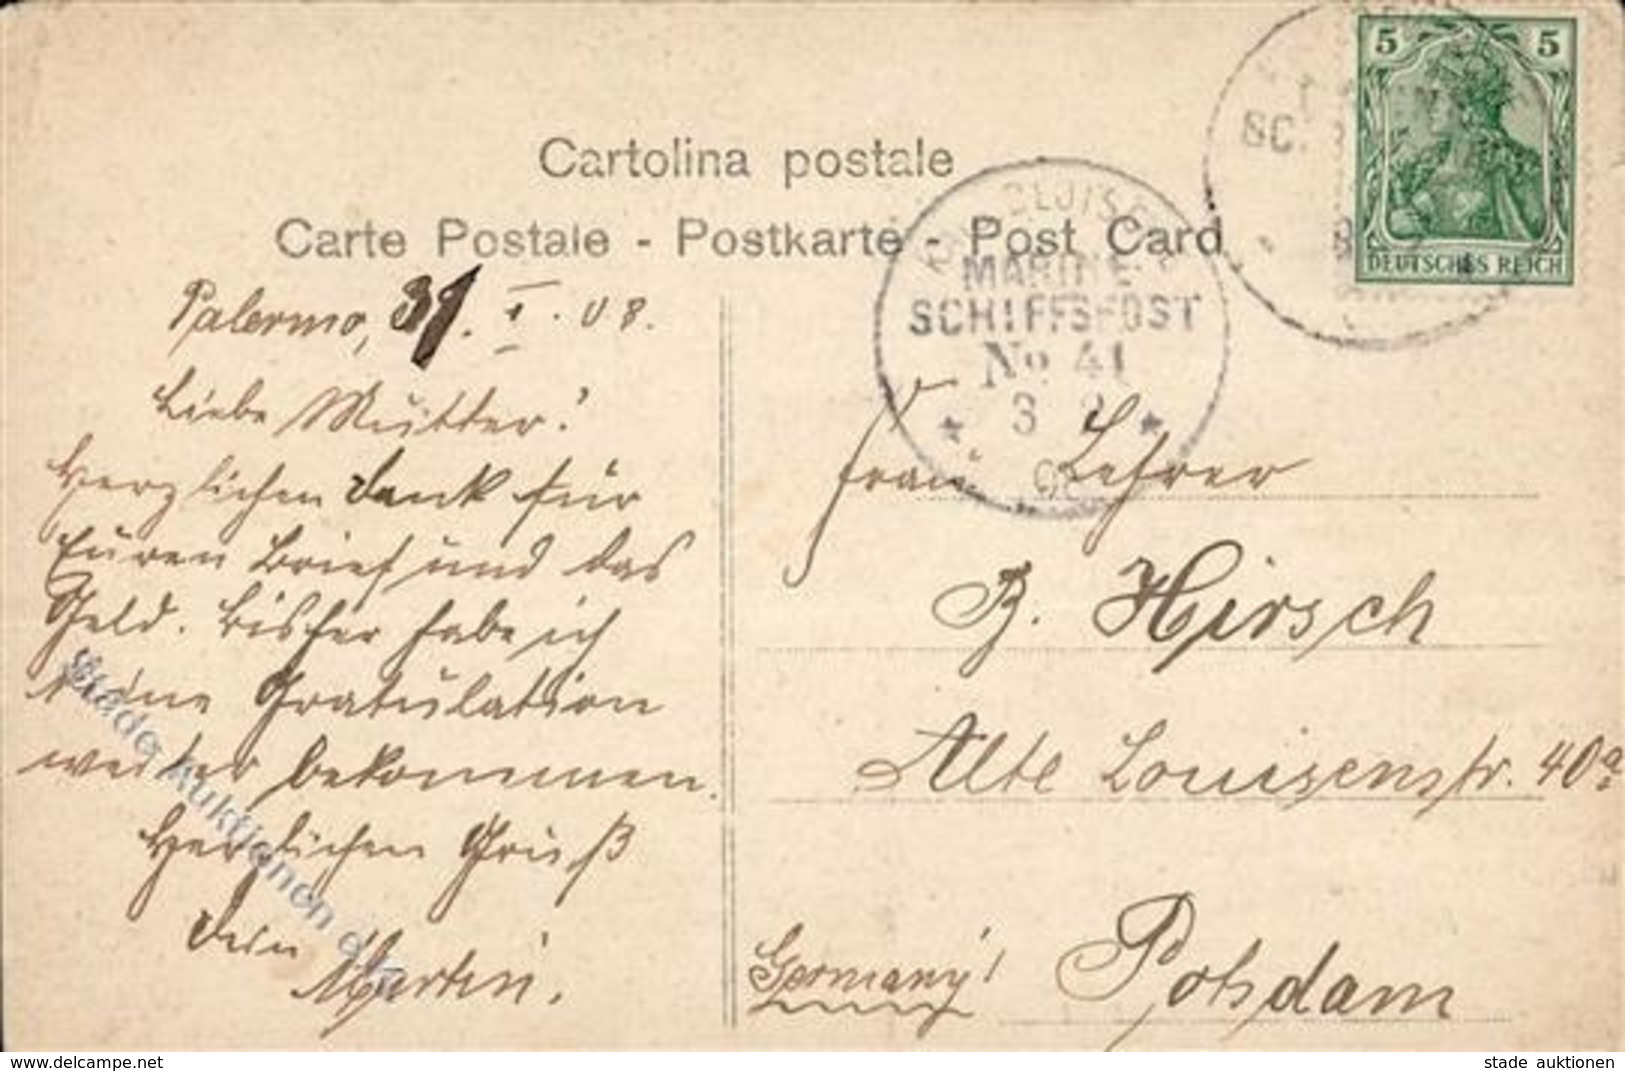 Cartolina postale
Carte Postale - Postkarte - Post Card
5 5
DEUTSCHES REICH
MARINE-
SCHIFFSPOST
No 41
3 2
08
Palermo, 31. I. 08.
Liebe Mutter!
Herzlichen Dank für
Euren Brief und das
Geld. Bisher habe ich
keine Gratulation
weiter bekommen.
Herzlichen Gruß
Dein
Martin.
Frau Lehrer
B. Hirsch
Alte Louisenstr. 40a
Potsdam
Germany!
Stade Auktionen
delcampe.net
stade auktionen